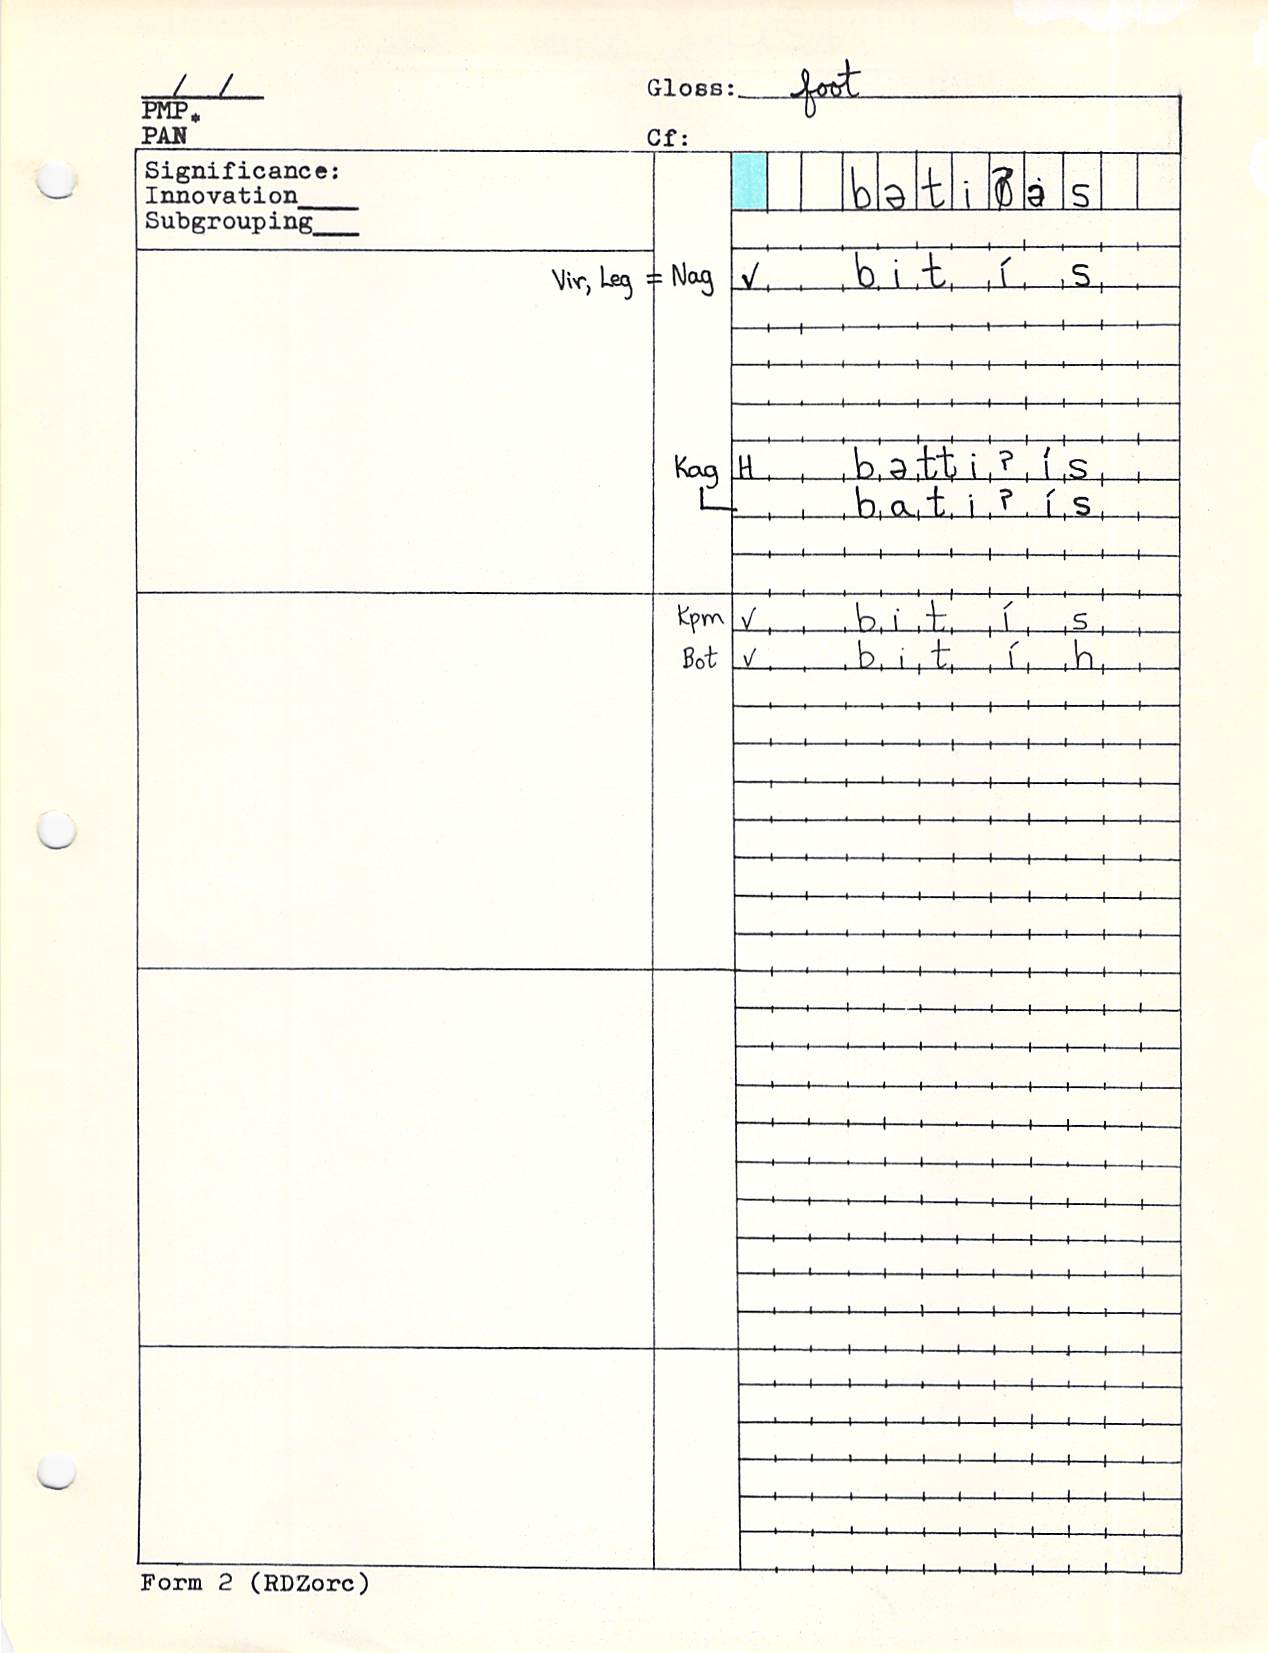 / /
Gloss: foot
PMP*
PAN
Cf:
Significance:
Innovation____
Subgrouping___
b ə t i s
Vir, Leg = Nag ✓ b i t í s
Kag H b ə tt i ʔ í s
b a t i ʔ í s
Kpm ✓ b i t í s
Bot ✓ b i t í h
Form 2 (RDZorc)